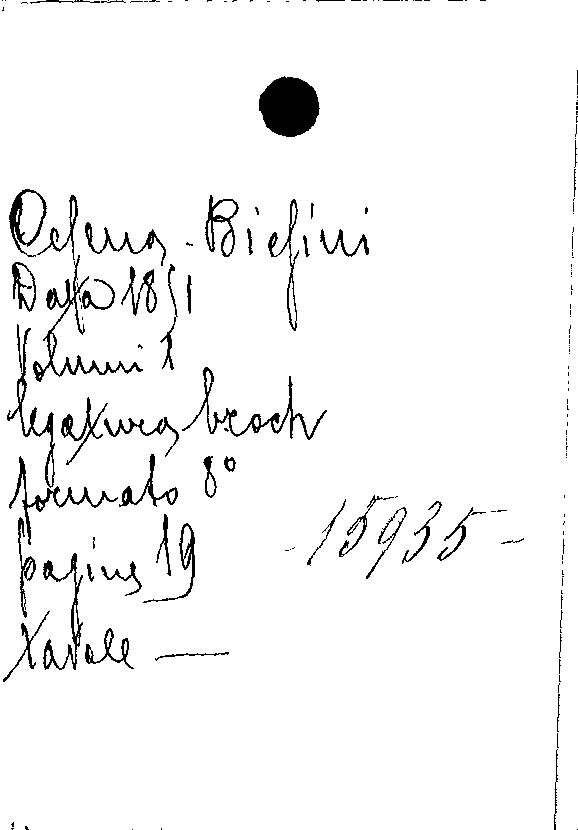 Data 1851
Volumi 1
legatura broch
formato 8°
pagine 19
- 15935 -
tavole —